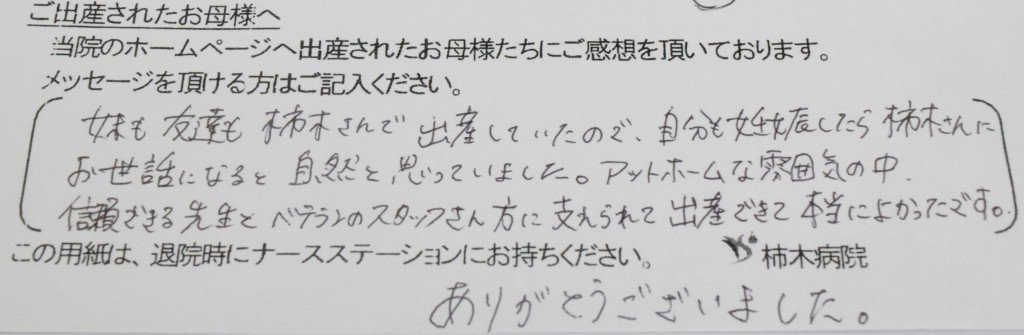 ご出産されたお母様へ
当院のホームページへ出産されたお母様たちにご感想を頂いております。
メッセージを頂ける方はご記入ください。
妹も 友達も 柿木さんで 出産していたので、自分も妊娠したら 柿木さんに
お世話になると 自然と 思っていました。アットホームな雰囲気の中、
信頼できる先生と ベテランのスタッフさん方に 支えられて 出産できて 本当によかったです。
この用紙は、退院時にナースステーションにお持ちください。 柿木病院
ありがとうございました。